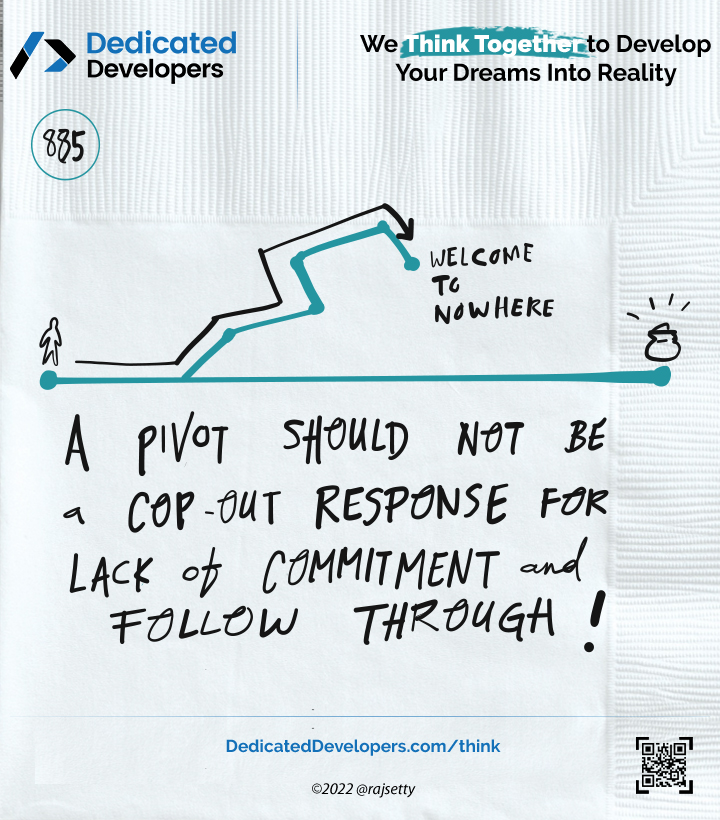 Dedicated
Developers
We Think Together to Develop
Your Dreams Into Reality
885
WELCOME
TO
NOWHERE
A PIVOT SHOULD NOT BE
a COP-OUT RESPONSE FOR
LACK of COMMITMENT and
FOLLOW THROUGH!
DedicatedDevelopers.com/think
©2022 @rajsetty